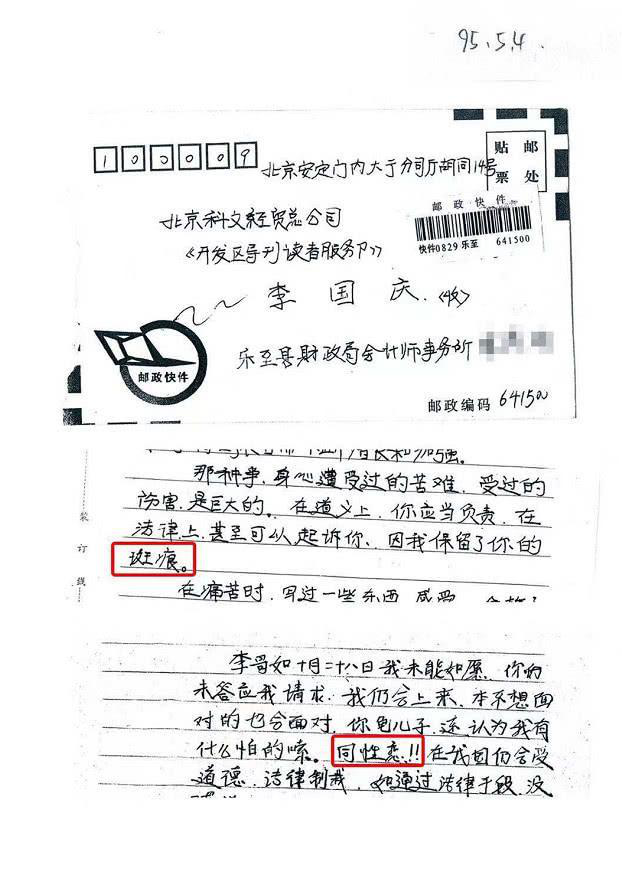 95.5.4.
100009
贴邮
票处
北京安定门内大于分司厅胡同14号
邮政快件
北京科文经贸总公司
快件0829 乐至 641500
《开发区导刊读者服务部》
李 国 庆 <收>
邮政快件
乐至县财政局会计师事务所
邮政编码 641500
那种事,身心遭受过的苦难,受过的
伤害,是巨大的。在道义上,你应当负责,在
装
法律上,甚至可以起诉你,因我保留了你的
订
斑痕。
线
在痛苦时,写过一些东西
李哥如十月二十八日我未能如愿,你的
未答应我请求,我们会上来,本不想面
对的也会面对,你兔儿子,还认为我有
什么怕的嗦。同性恋!!在我国仍会受
道德、法律制裁,如通过法律手段,没